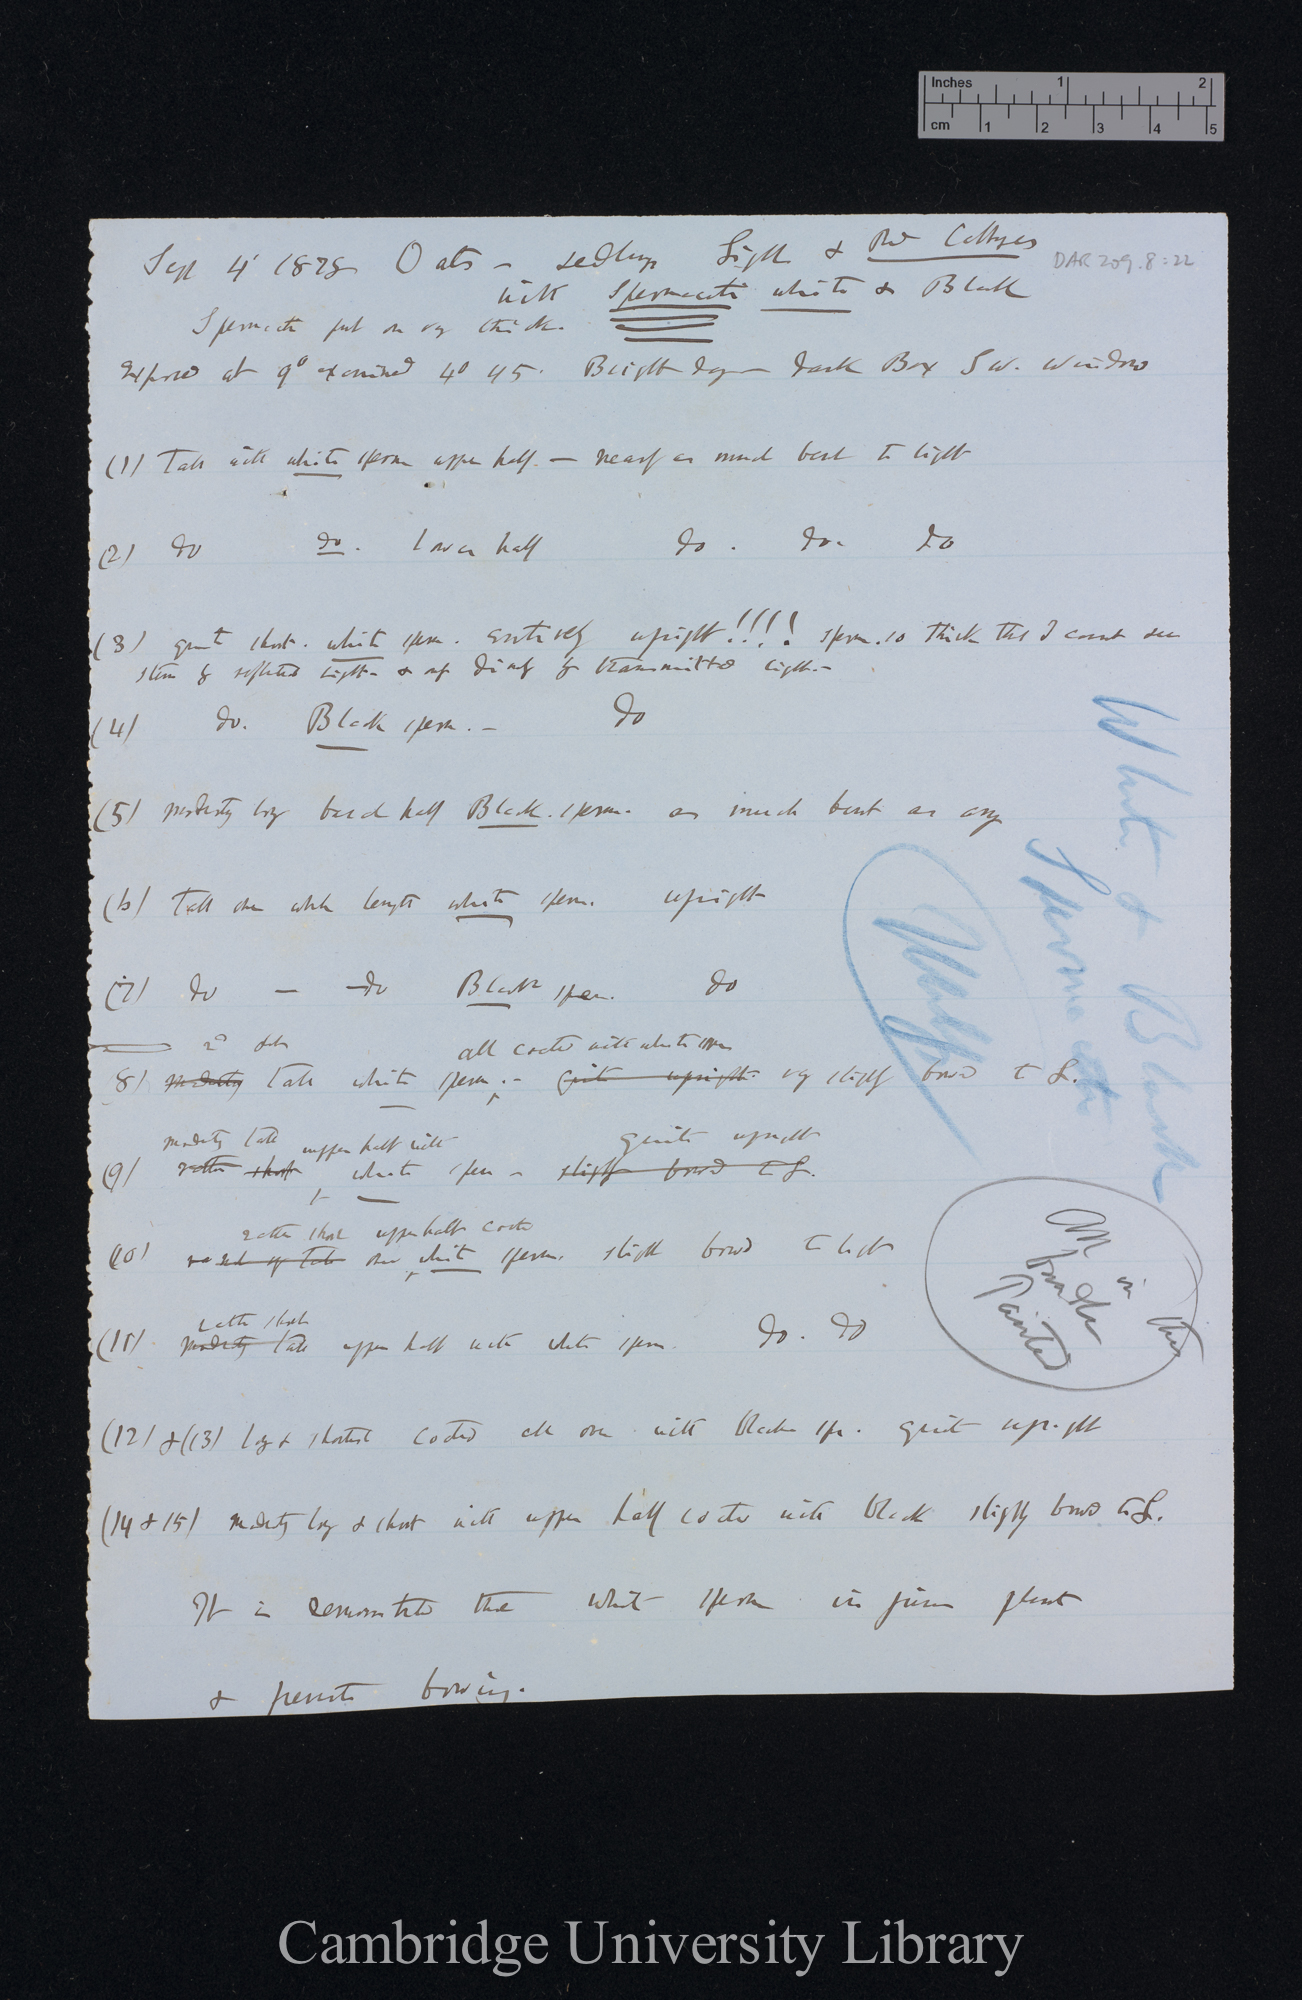 Inches 1 2
cm 1 2 3 4 5
DAR 209.8:22
Sept 4' 1878 Oats – seedlings Light & Cottyns
with Spermaceti white & Black
Spermaceti put on very thick.
Exposed at 9° examined 4° 45'. Bright day – dark Box S W. Window
(1) Tall with white sperm upper half – nearly as much bent to light
(2) do do. Lower half do. do. do
(3) quite short. white sperm. entirely upright!!!! sperm. so thick that I cannot see
stem by reflected light – & only by transmitted light –
(4) do. Black sperm. – do
(5) moderately long basal half Black. sperm. as much bent as any
(6) Tall one whole length white sperm. upright
(7) do — — do Black sperm. do
2d all coated with white
8) moderately tall white sperm. – quite upright. very slightly bowed to L.
moderately tall upper half with quite upright
(9) rather short white sperm – slightly bowed to L.
rather short upper half coated
(10) tall one white sperm. slightly bowed to light
rather short
(11) moderately tall upper half with white sperm. do. do
(12) & (13) long & shortest coated all over with black sp. quite upright
(14 & 15) moderately long & short with upper half coated with black slightly bowed to L.
It is demonstrated that white sperm in plant
& prevents bowing.
White & Black
Spermaceti
All in this
bundle
Painted
Cambridge University Library